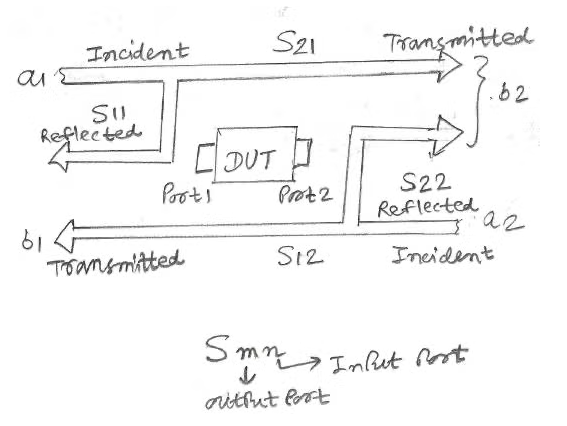 Incident S21 Transmitted
a1
b2
S11
Reflected
DUT
Port1 Port2
S22
Reflected
a2
b1
Transmitted S12 Incident
Smn → Input Port
↓
output Port